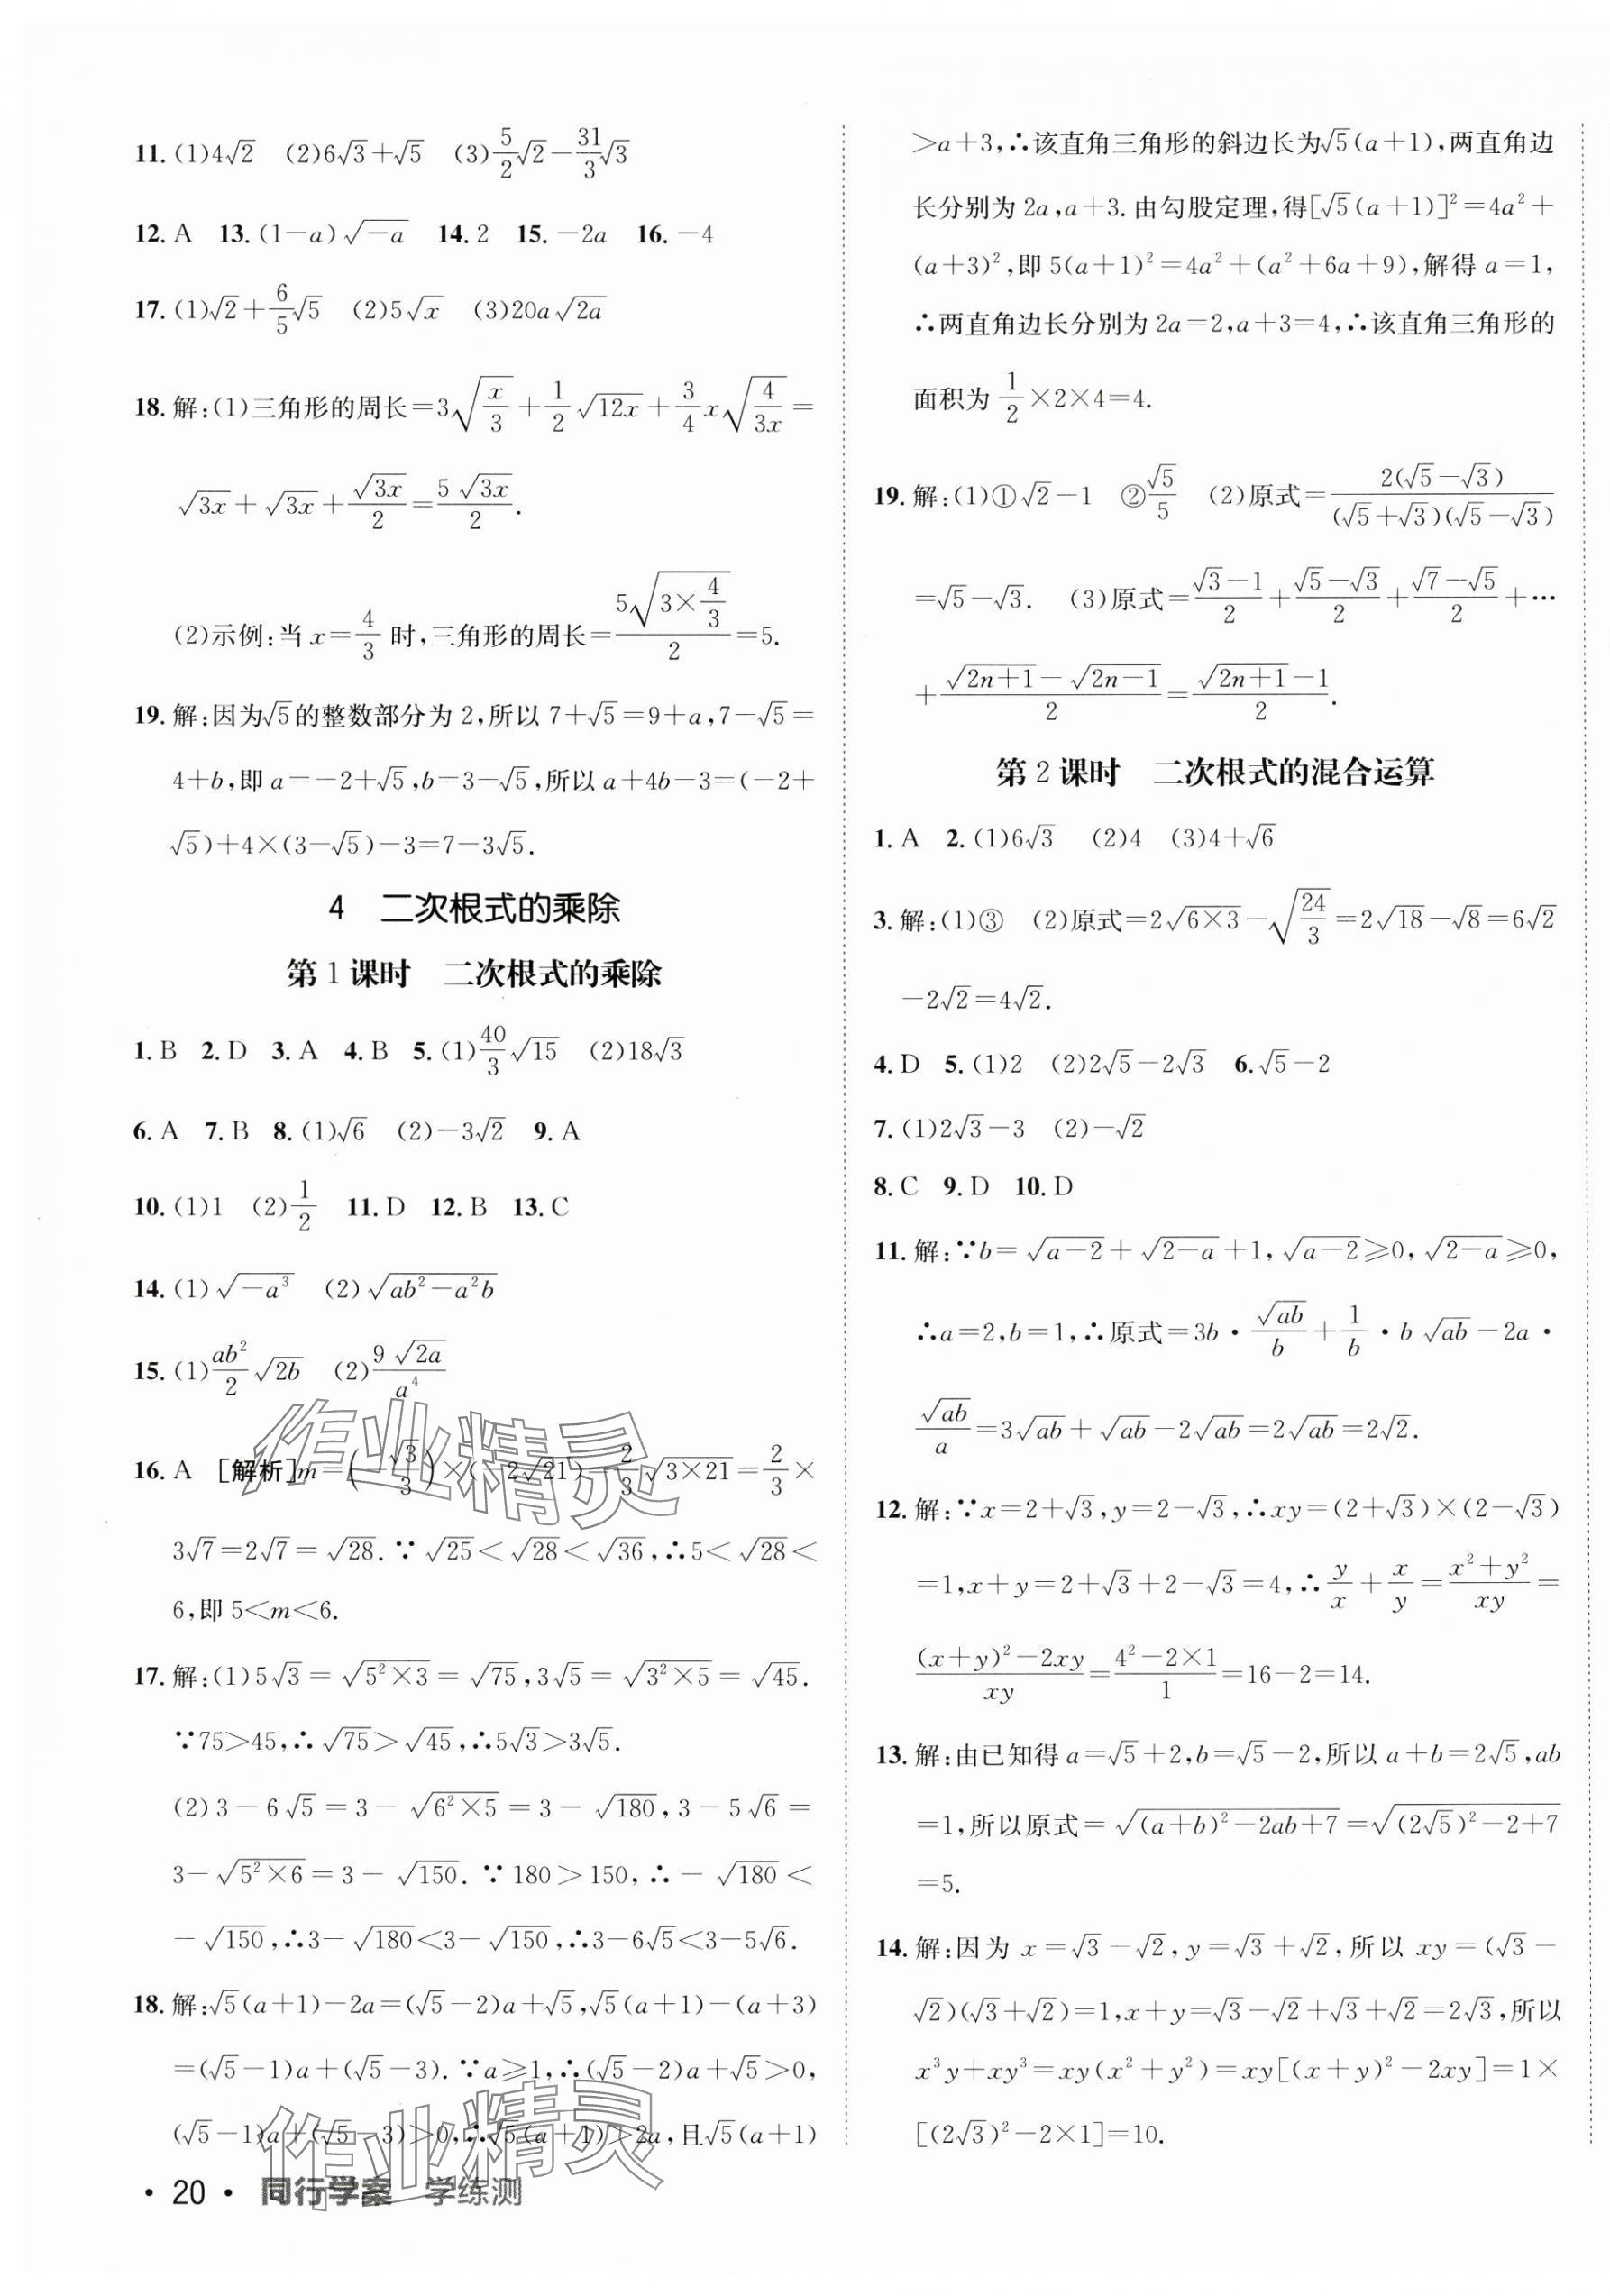 11. (1)4√2  (2)6√3+√5  (3)5/2√2−31/3√3
12. A  13. (1−a)√(−a)  14. 2  15. −2a  16. −4
17. (1)√2+6/5√5  (2)5√x  (3)20a√(2a)
18. 解:(1)三角形的周长=3√(x/3)+1/2√(12x)+3/4x√(4/(3x))=
√(3x)+√(3x)+√(3x)/2=5√(3x)/2.
(2)示例:当x=4/3时,三角形的周长=5√(3×4/3)/2=5.
19. 解:因为√5的整数部分为2,所以7+√5=9+a,7−√5=
4+b,即a=−2+√5,b=3−√5,所以a+4b−3=(−2+
√5)+4×(3−√5)−3=7−3√5.
4 二次根式的乘除
第1课时 二次根式的乘除
1. B  2. D  3. A  4. B  5. (1)40/3√15  (2)18√3
6. A  7. B  8. (1)√6  (2)−3√2  9. A
10. (1)1  (2)1/2  11. D  12. B  13. C
14. (1)√(−a³)  (2)√(ab²−a²b)
15. (1)ab²/2√(2b)  (2)9√(2a)/a⁴
16. A [解析]m=(−√3/3)×(−2√21)=2/3√(3×21)=2/3×
3√7=2√7=√28.∵√25<√28<√36,∴5<√28<
6,即5<m<6.
17. 解:(1)5√3=√(5²×3)=√75,3√5=√(3²×5)=√45.
∵75>45,∴√75>√45,∴5√3>3√5.
(2)3−6√5=3−√(6²×5)=3−√180,3−5√6=
3−√(5²×6)=3−√150.∵180>150,∴−√180<
−√150,∴3−√180<3−√150,∴3−6√5<3−5√6.
18. 解:√5(a+1)−2a=(√5−2)a+√5,√5(a+1)−(a+3)
=(√5−1)a+(√5−3).∵a≥1,∴(√5−2)a+√5>0,
(√5−1)a+(√5−3)>0,∴√5(a+1)>2a,且√5(a+1)
>a+3,∴该直角三角形的斜边长为√5(a+1),两直角边
长分别为2a,a+3.由勾股定理,得[√5(a+1)]²=4a²+
(a+3)²,即5(a+1)²=4a²+(a²+6a+9),解得a=1,
∴两直角边长分别为2a=2,a+3=4,∴该直角三角形的
面积为1/2×2×4=4.
19. 解:(1)①√2−1  ②√5/5  (2)原式=2(√5−√3)/((√5+√3)(√5−√3))
=√5−√3.  (3)原式=(√3−1)/2+(√5−√3)/2+(√7−√5)/2+…
+(√(2n+1)−√(2n−1))/2=(√(2n+1)−1)/2.
第2课时 二次根式的混合运算
1. A  2. (1)6√3  (2)4  (3)4+√6
3. 解:(1)③  (2)原式=2√(6×3)−√(24/3)=2√18−√8=6√2
−2√2=4√2.
4. D  5. (1)2  (2)2√5−2√3  6. √5−2
7. (1)2√3−3  (2)−√2
8. C  9. D  10. D
11. 解:∵b=√(a−2)+√(2−a)+1,√(a−2)≥0,√(2−a)≥0,
∴a=2,b=1,∴原式=3b·√(ab)/b+1/b·b√(ab)−2a·
√(ab)/a=3√(ab)+√(ab)−2√(ab)=2√(ab)=2√2.
12. 解:∵x=2+√3,y=2−√3,∴xy=(2+√3)×(2−√3)
=1,x+y=2+√3+2−√3=4,∴y/x+x/y=(x²+y²)/(xy)=
((x+y)²−2xy)/(xy)=(4²−2×1)/1=16−2=14.
13. 解:由已知得a=√5+2,b=√5−2,所以a+b=2√5,ab
=1,所以原式=√((a+b)²−2ab+7)=√((2√5)²−2+7)
=5.
14. 解:因为x=√3−√2,y=√3+√2,所以xy=(√3−
√2)(√3+√2)=1,x+y=√3−√2+√3+√2=2√3,所以
x³y+xy³=xy(x²+y²)=xy[(x+y)²−2xy]=1×
[(2√3)²−2×1]=10.
· 20 · 同行学案 学练测
作业精灵
作业精灵